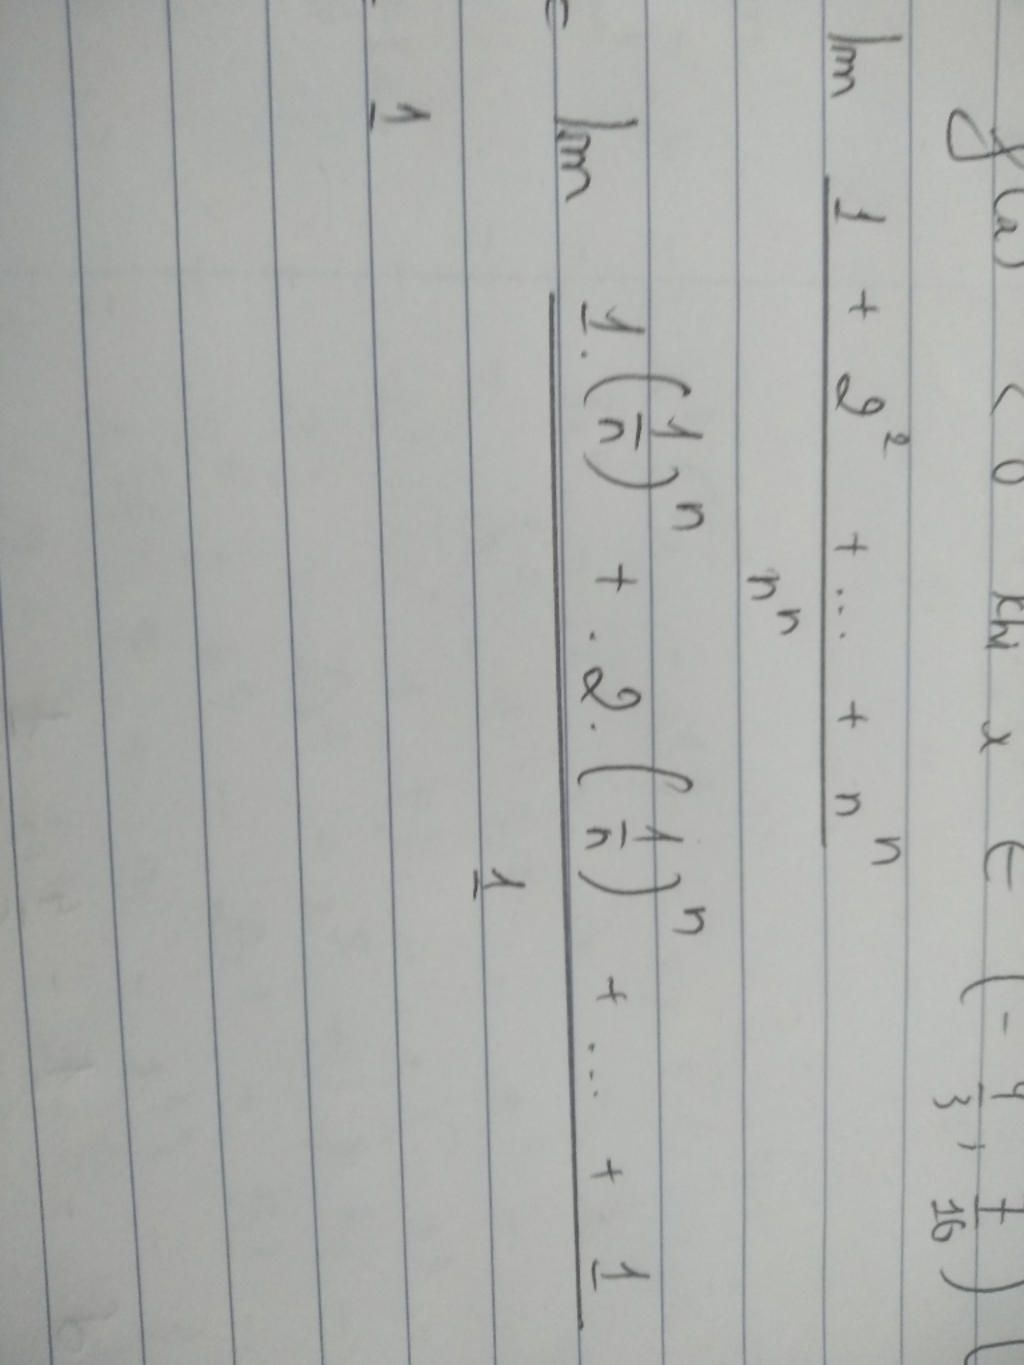 f(x) < 0 khi x ∈ (-4/3, 1/16)
lim (1 + 2² + ... + nⁿ) / nⁿ
= lim (1.(1/n)ⁿ + .2.(1/n)ⁿ + ... + 1) / 1
= 1